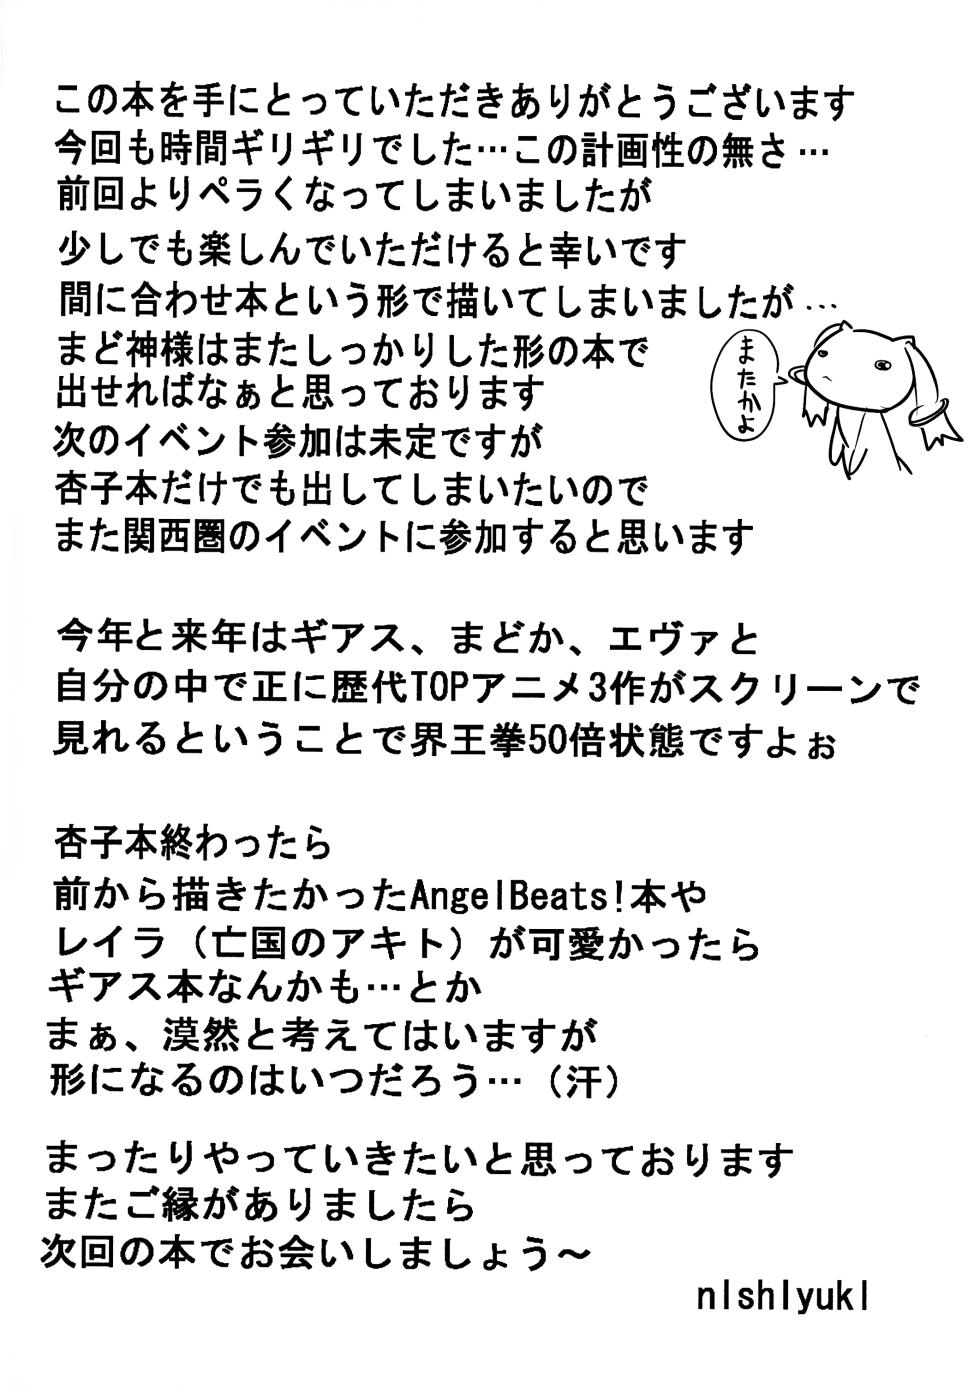 この本を手にとっていただきありがとうございます
今回も時間ギリギリでした…この計画性の無さ…
前回よりペラくなってしまいましたが
少しでも楽しんでいただけると幸いです
間に合わせ本という形で描いてしまいましたが…
まど神様はまたしっかりした形の本で
出せればなぁと思っております
次のイベント参加は未定ですが
杏子本だけでも出してしまいたいので
また関西圏のイベントに参加すると思います
またかよ
今年と来年はギアス、まどか、エヴァと
自分の中で正に歴代TOPアニメ3作がスクリーンで
見れるということで界王拳50倍状態ですよぉ
杏子本終わったら
前から描きたかったAngelBeats!本や
レイラ（亡国のアキト）が可愛かったら
ギアス本なんかも…とか
まぁ、漠然と考えてはいますが
形になるのはいつだろう…（汗）
まったりやっていきたいと思っております
またご縁がありましたら
次回の本でお会いしましょう～
nIshIyukI